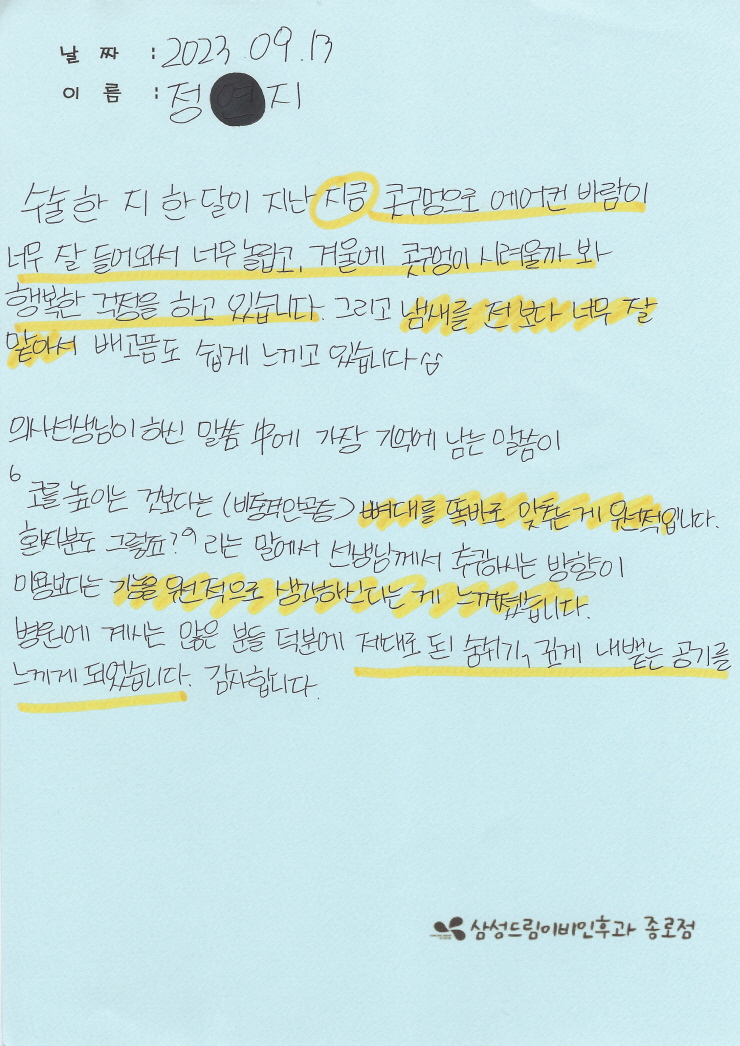 날 짜 : 2023. 09. 13
이 름 : 정 지
수술한 지 한 달이 지난 지금 콧구멍으로 에어컨 바람이
너무 잘 들어와서 너무 놀랍고, 겨울에 콧구멍이 시려울까 봐
행복한 걱정을 하고 있습니다. 그리고 냄새를 전보다 너무 잘
맡아서 배고픔도 쉽게 느끼고 있습니다
의사선생님이 하신 말씀 中에 가장 기억에 남는 말씀이
'코를 높이는 것보다는 ( ) 뼈대를 똑바로 맞추는 게 원적입니다.
환자분도 그렇죠?' 라는 말에서 선생님께서 추구하시는 방향이
미용보다는 기능을 원적으로 생각하신다는 게 느껴졌습니다.
병원에 계시는 많은 분들 덕분에 제대로 된 숨쉬기, 깊게 내뱉는 공기를
느끼게 되었습니다. 감사합니다.
삼성드림이비인후과 종로점